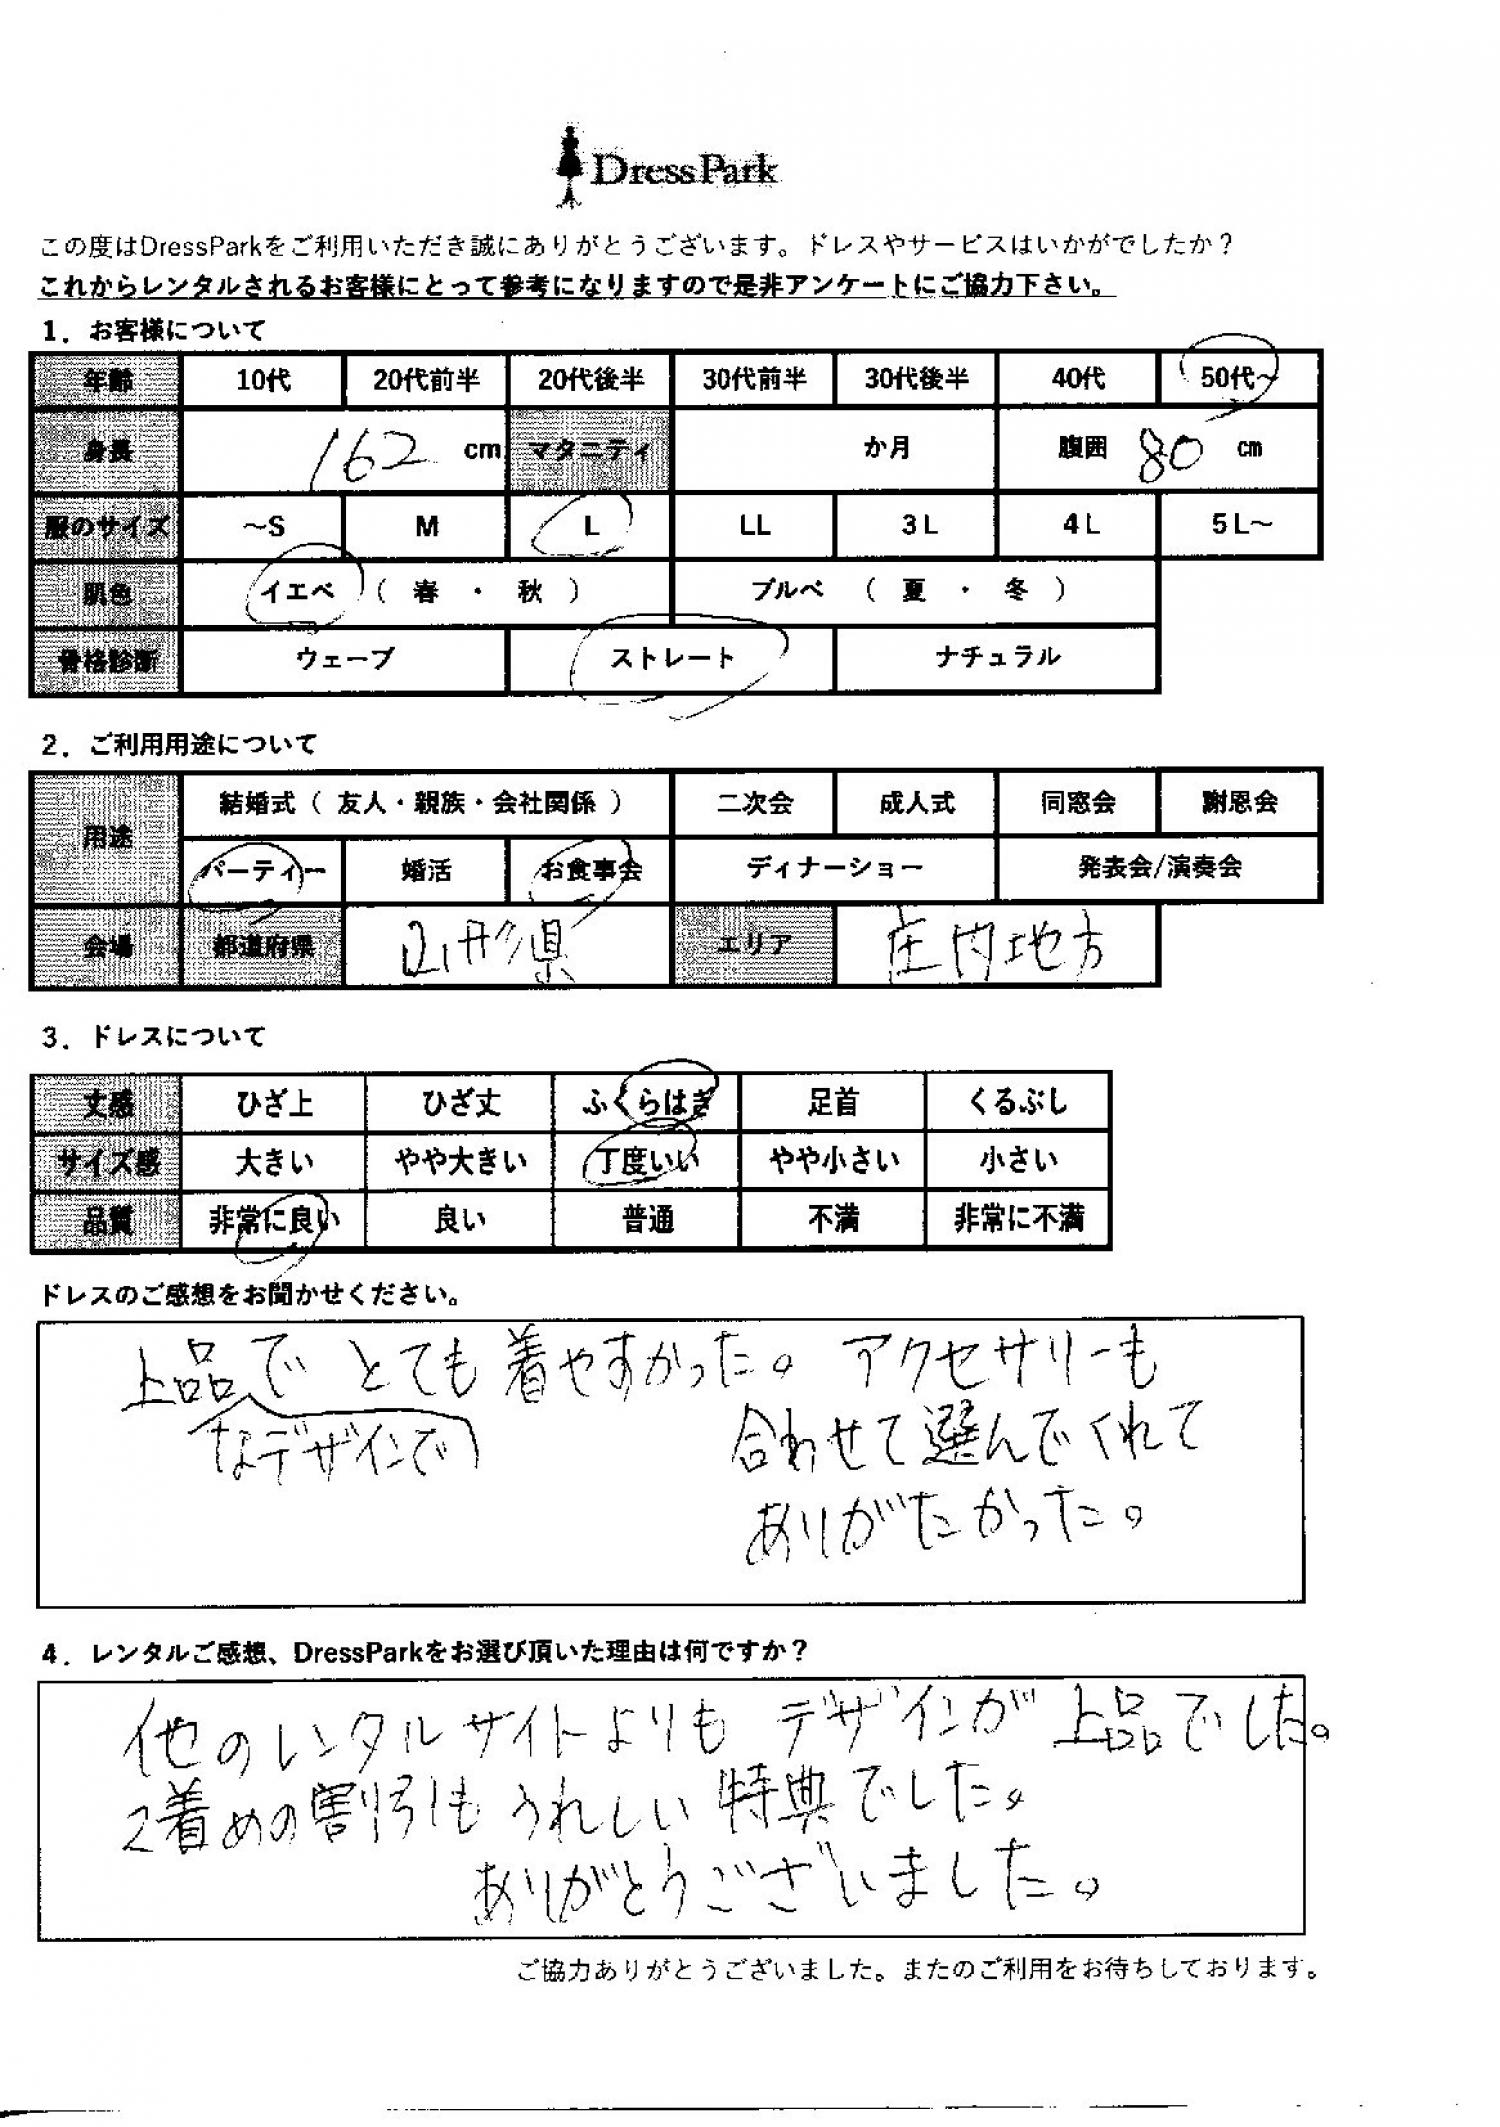 DressPark
この度はDressParkをご利用いただき誠にありがとうございます。ドレスやサービスはいかがでしたか？
これからレンタルされるお客様にとって参考になりますので是非アンケートにご協力下さい。
1．お客様について
年齢 10代 20代前半 20代後半 30代前半 30代後半 40代 50代～
身長 162 cm マタニティ か月 腹囲 80 cm
服のサイズ ～S M L LL 3L 4L 5L～
肌色 イエベ（ 春 ・ 秋 ） ブルベ （ 夏 ・ 冬 ）
骨格診断 ウェーブ ストレート ナチュラル
2．ご利用用途について
用途 結婚式（ 友人・親族・会社関係 ） 二次会 成人式 同窓会 謝恩会
パーティー 婚活 お食事会 ディナーショー 発表会/演奏会
会場 都道府県 山形県 エリア 庄内地方
3．ドレスについて
丈感 ひざ上 ひざ丈 ふくらはぎ 足首 くるぶし
サイズ感 大きい やや大きい 丁度いい やや小さい 小さい
品質 非常に良い 良い 普通 不満 非常に不満
ドレスのご感想をお聞かせください。
上品で とても着やすかった。アクセサリーも
なデザインで 合わせて選んでくれて
ありがたかった。
4．レンタルご感想、DressParkをお選び頂いた理由は何ですか？
他のレンタルサイトよりも デザインが上品でした。
2着めの割引もうれしい特典でした。
ありがとうございました。
ご協力ありがとうございました。またのご利用をお待ちしております。